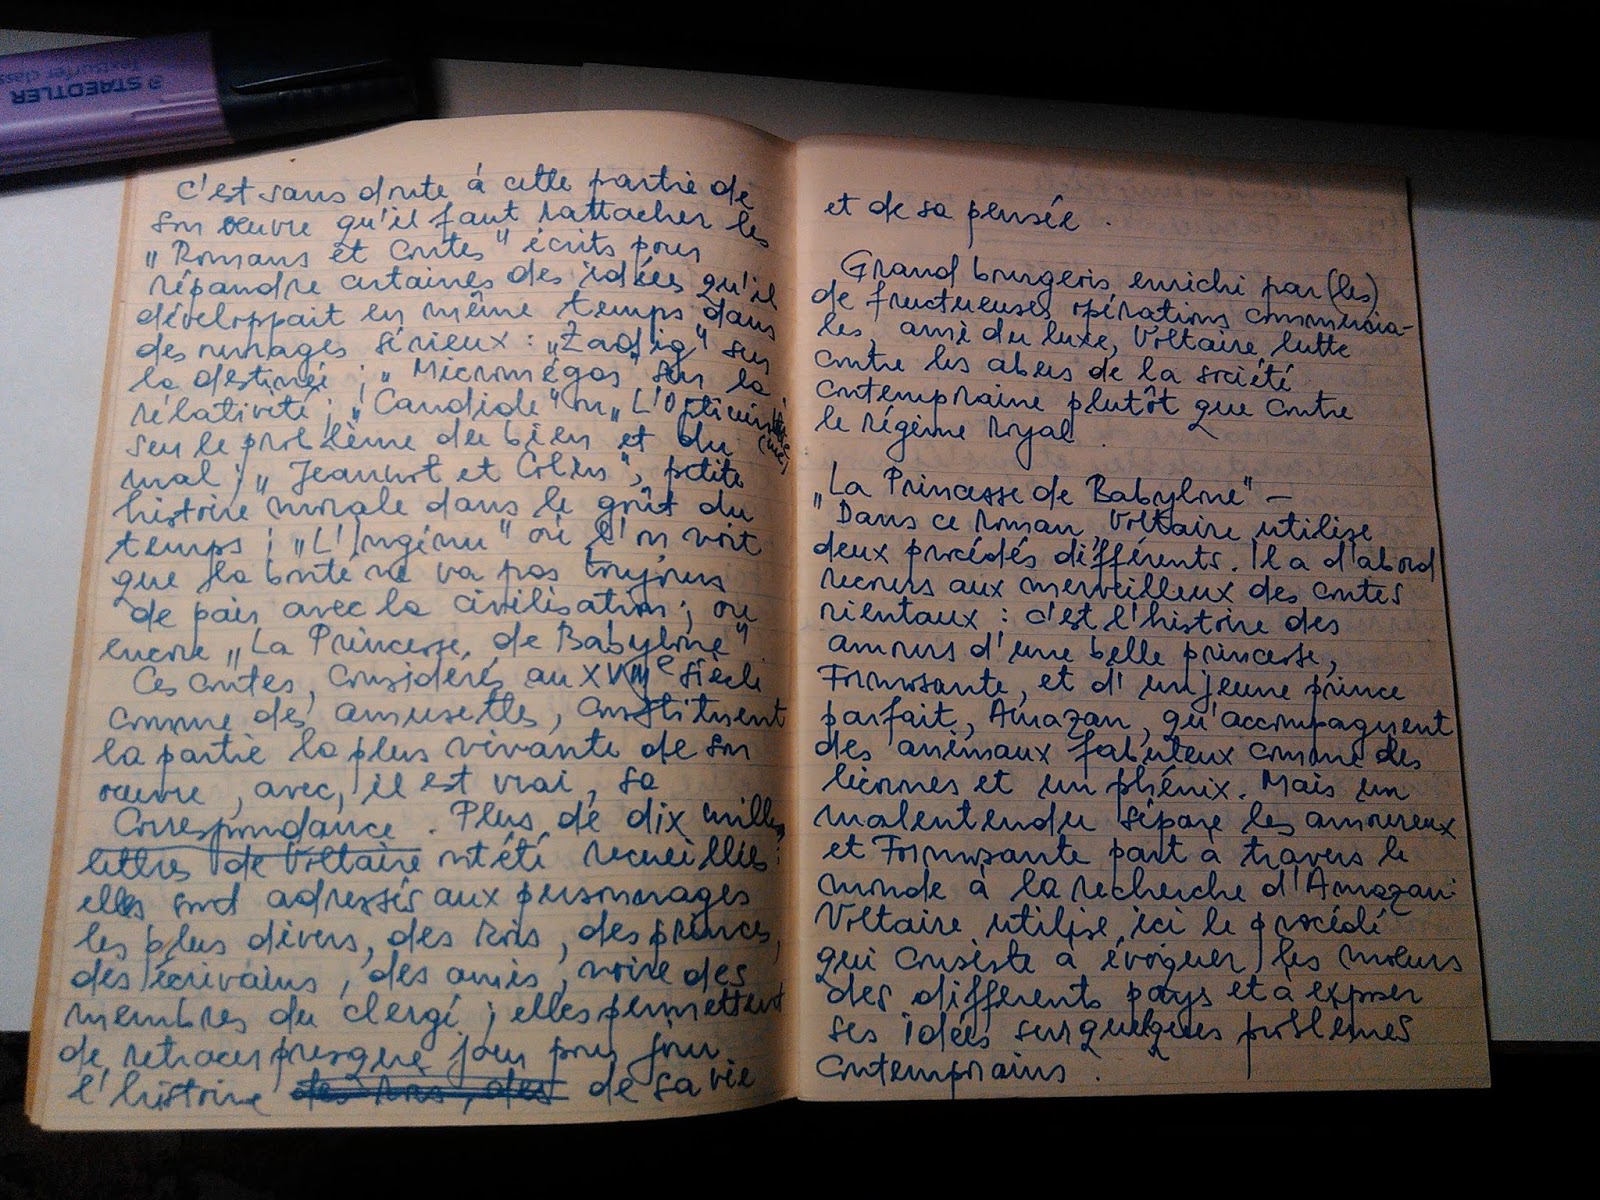 STAEDTLER
textsurfer class
c'est sans doute à cette partie de
son œuvre qu'il faut rattacher les
„Romans et Contes" écrits pour
répandre certaines des idées qu'il
développait en même temps dans
des ouvrages sérieux : „Zadig" sur
la destinée ; „Micromégas" sur la
rélativité ; „Candide" ou „L'Optimis
sur le problème du bien et du
mal ; „Jeannot et Colin", petite
histoire morale dans le goût du
temps ; „L'Ingénu" où l'on voit
que la bonté ne va pas toujours
de pair avec la civilisation ; ou
encore „La Princesse de Babylone"
Ces contes, considérés au XVIIIe siècle
comme des amusettes, constituent
la partie la plus vivante de son
œuvre, avec, il est vrai, sa
Correspondance. Plus de dix milles
lettres de Voltaire ont été recueillies :
elles sont adressés aux personnages
les plus divers, des rois, des princes,
des écrivains, des amis, voire des
membres du clergé ; elles permettent
de retracer presque jour pour jour
l'histoire des rois, des de sa vie
et de sa pensée.
Grand bourgeois enrichi par (les)
de fructueuses opérations commercia-
les, ami du luxe, Voltaire lutte
contre les abus de la société
contemporaine plutôt que contre
le régime royal.
„La Princesse de Babylone" –
"Dans ce roman, Voltaire utilise
deux procédés différents. Il a d'abord
recours aux merveilleux des contes
orientaux : c'est l'histoire des
amours d'une belle princesse,
Formosante, et d'un jeune prince
parfait, Amazan, qu'accompagnent
des animaux fabuleux comme des
licornes et un phénix. Mais un
malentendu sépare les amoureux
et Formosante part à travers le
monde à la recherche d'Amazan.
Voltaire utilise ici le procédé
qui consiste à évoquer les mœurs
des différents pays et à exposer
ses idées sur quelques problèmes
contemporains.